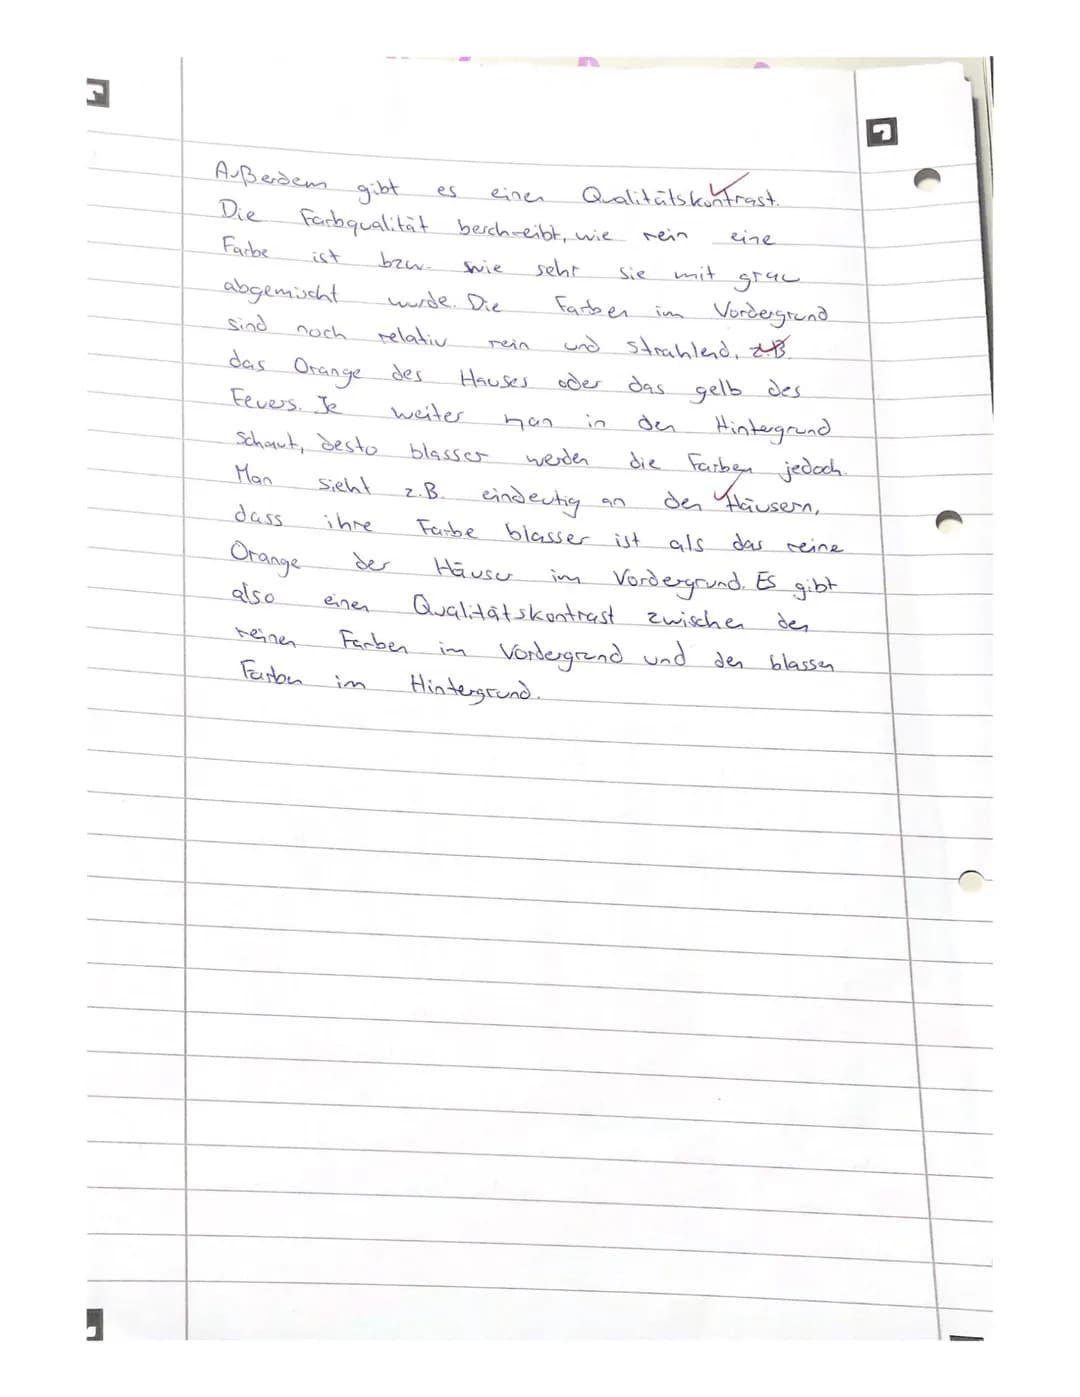 Außerdem gibt es einen Qualitätskontrast.
Die Farbqualität beschreibt, wie rein eine
Farbe ist bzw. wie sehr sie mit grau
abgemischt wurde. Die Farben im Vordergrund
sind noch relativ rein und strahlend, z.B.
das Orange des Hauses oder das gelb des
Feuers. Je weiter man in den Hintergrund
schaut, desto blasser werden die Farben jedoch.
Man sieht z.B. eindeutig an den Häusern,
dass ihre Farbe blasser ist als das reine
Orange der Häuser im Vordergrund. Es gibt
also einen Qualitätskontrast zwischen den
reinen Farben im Vordergrund und den blassen
Farben im Hintergrund.